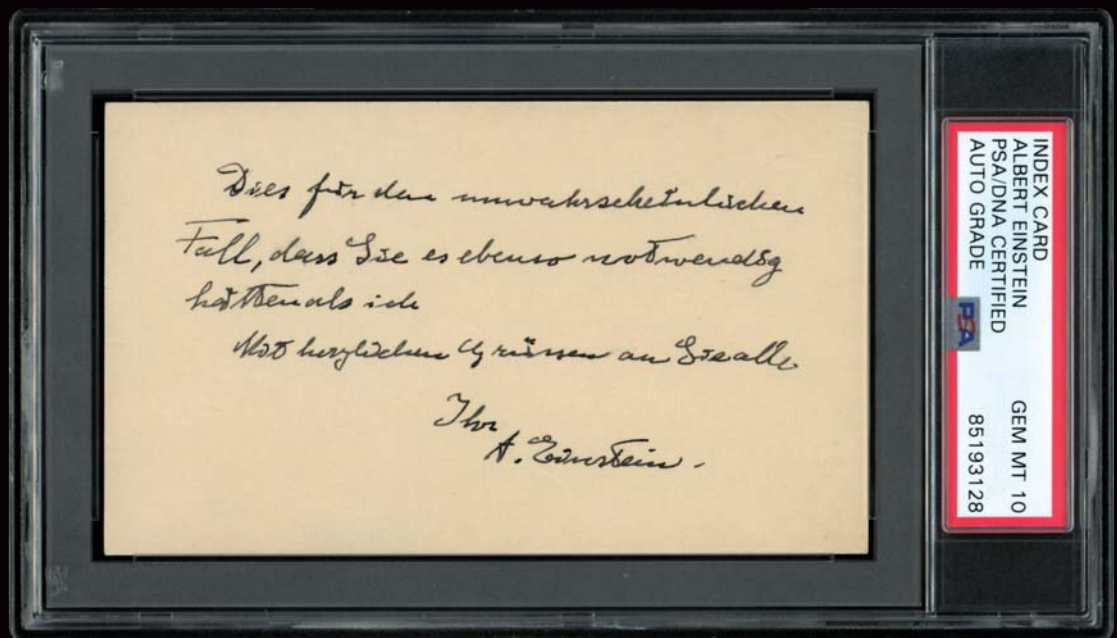 Dies für den unwahrscheinlichen
Fall, dass Sie es ebenso notwendig
hätten als ich
Mit herzlichen Grüssen an Sie alle
Ihr
A. Einstein.
INDEX CARD
ALBERT EINSTEIN
PSA/DNA CERTIFIED
AUTO GRADE
PSA
GEM MT 10
85193128